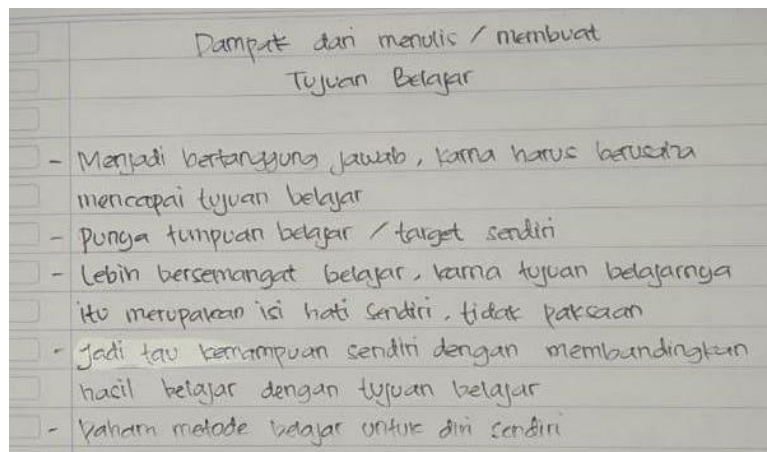 Dampak dari menulis / membuat
Tujuan Belajar
- Menjadi bertanggung jawab, karna harus berusaha
mencapai tujuan belajar
- Punya tumpuan belajar / target sendiri
- Lebih bersemangat belajar, karna tujuan belajarnya
itu merupakan isi hati sendiri, tidak paksaan
- Jadi tau kemampuan sendiri dengan membandingkan
hasil belajar dengan tujuan belajar
- Paham metode belajar untuk diri sendiri